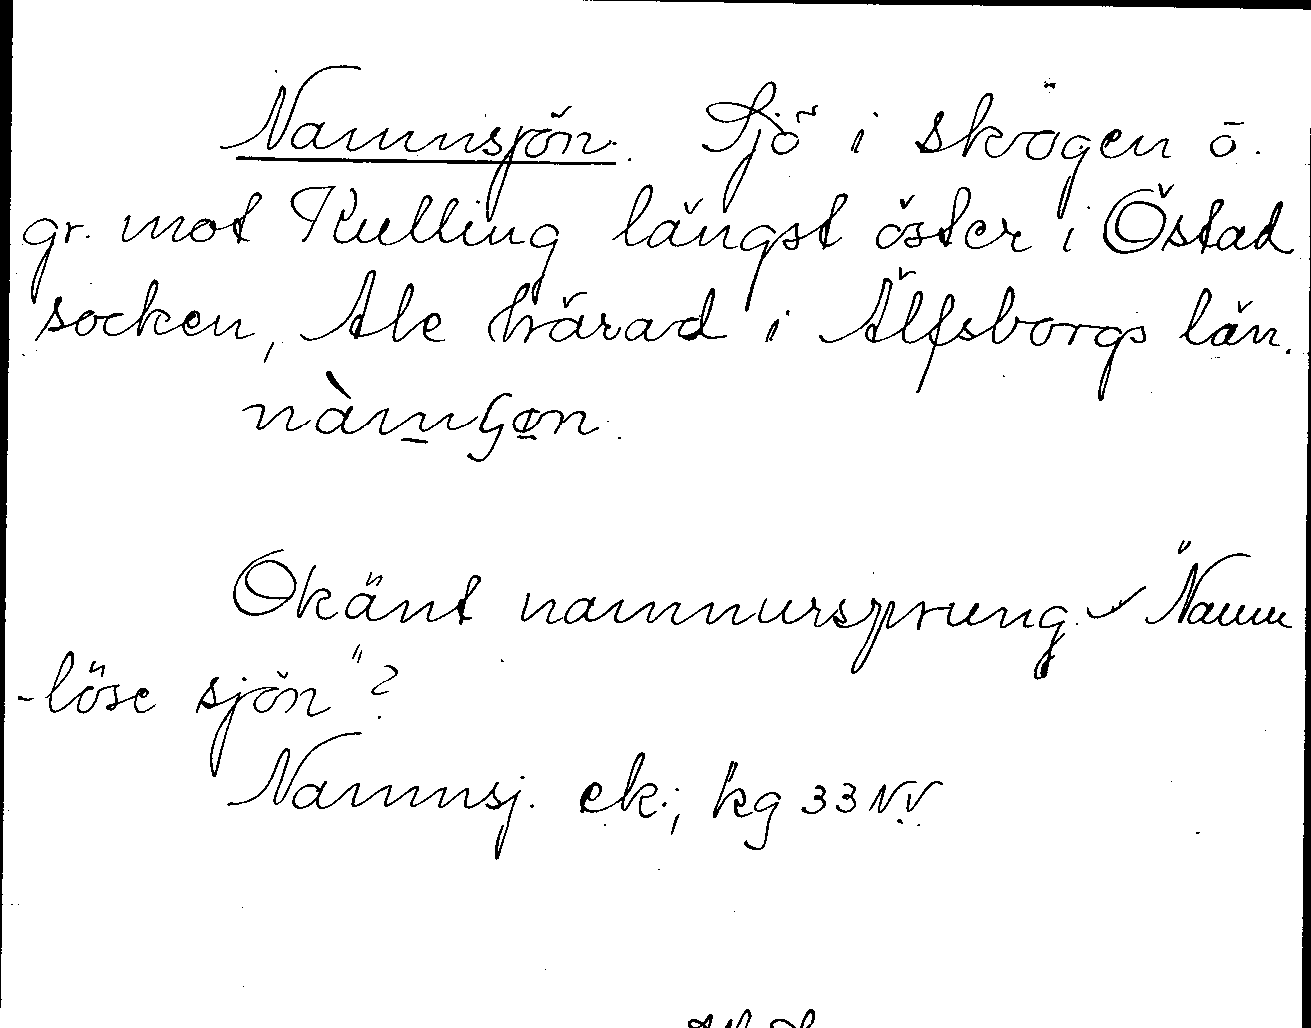 Namnsjön. Sjö i skogen ö.
gr. mot Kulling längst öster i Östad
socken, Ale härad i Älfsborgs län.

Okänt namnursprung. "Namn
-löse sjön"?
Namnsj. ek.; kg 33 NV